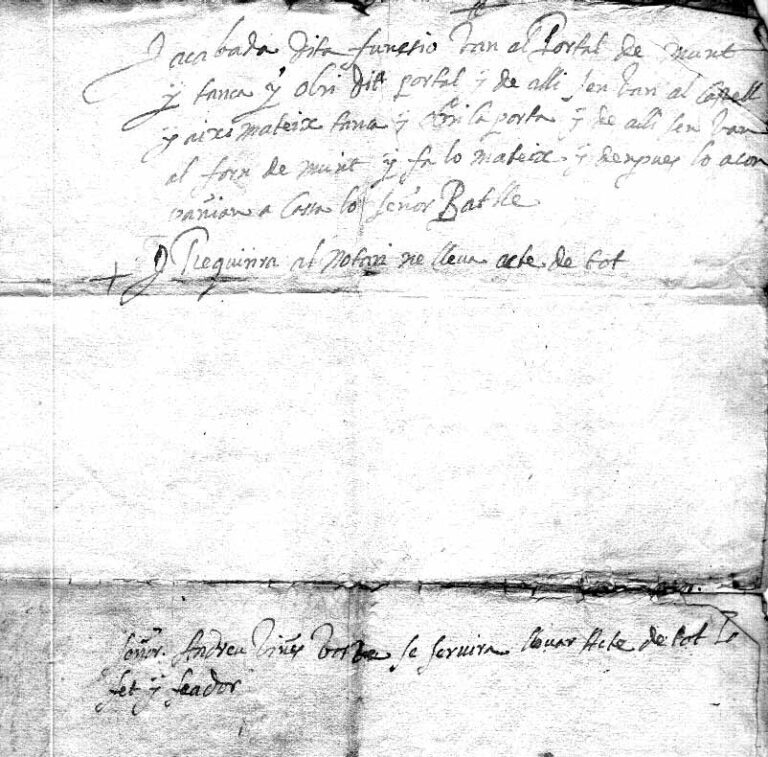 J acabada dita functio van al Portal de munt
y tanca y obri dit portal y de alli sen van al Capell
y aixi mateix tanca y obri la porta y de alli sen van
al forn de munt y fa lo mateix y despues lo acom
pañian a Cassa lo señor Batlle
J Requirira al Notari ne lleva acte de tot
señor Andreu Vives se servira llevar Acte de tot lo
fet y